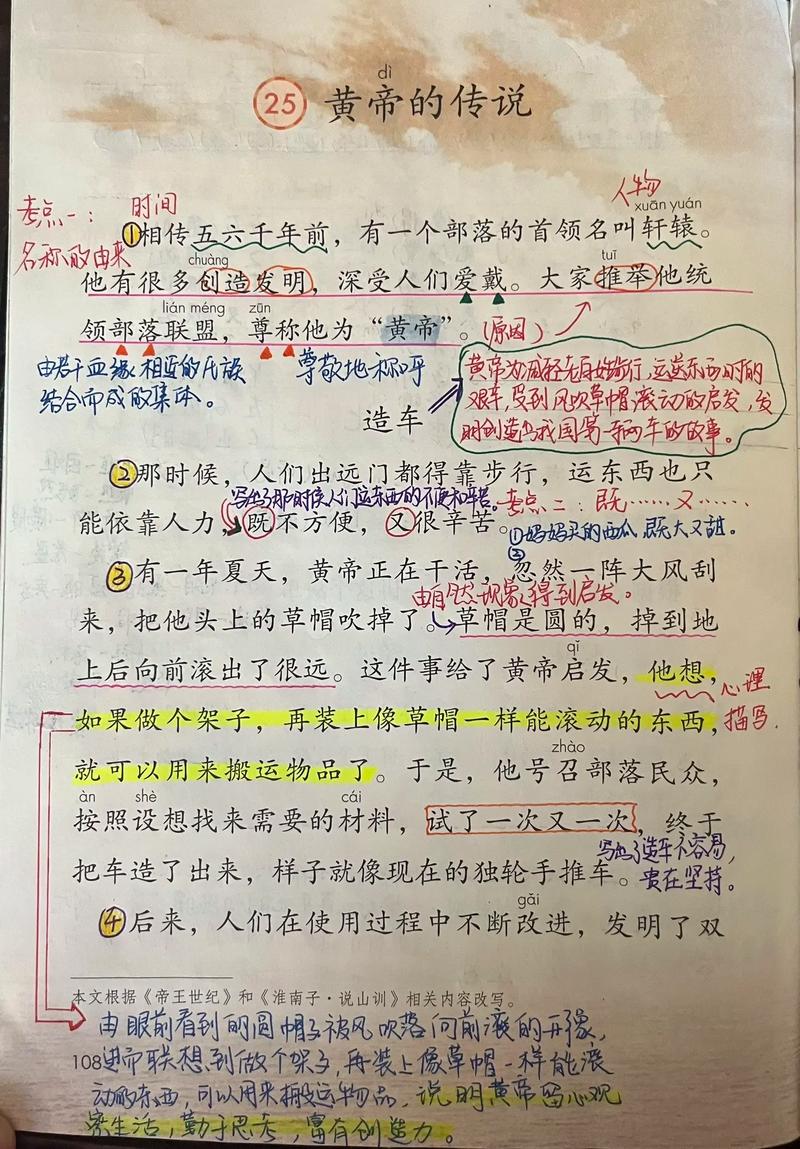 dì
25 黄帝的传说
人物
考点一: 时间
xuān yuán
①相传五六千年前，有一个部落的首领名叫轩辕。
名称的由来
chuàng tuī
他有很多创造发明，深受人们爱戴。大家推举他统
lián méng zūn
领部落联盟，尊称他为“黄帝”。(原因)
由若干血缘相近的氏族
结合而成的集体。
尊敬地称呼
黄帝为减轻老百姓步行、运送东西时的
艰辛,受到风吹草帽滚动的启发,发
明创造出我国第一辆车的故事。
造车
②那时候，人们出远门都得靠步行，运东西也只
写出了那时候人们运东西的不便和辛苦。
考点二:既……又……
能依靠人力，既不方便，又很辛苦。
①妈妈买的西瓜既大又甜。
②
③有一年夏天，黄帝正在干活，忽然一阵大风刮
由自然现象得到启发。
来，把他头上的草帽吹掉了。草帽是圆的，掉到地
qǐ
上后向前滚出了很远。这件事给了黄帝启发，他想，
心理
描写.
如果做个架子，再装上像草帽一样能滚动的东西，
zhào
就可以用来搬运物品了。于是，他号召部落民众，
àn shè cái
按照设想找来需要的材料，试了一次又一次，终于
写出了造车不容易,
贵在坚持。
把车造了出来，样子就像现在的独轮手推车。
gǎi
④后来，人们在使用过程中不断改进，发明了双
本文根据《帝王世纪》和《淮南子·说山训》相关内容改写。
由眼前看到的圆帽子被风吹落向前滚的形象,
108
进而联想到做个架子,再装上像草帽一样能滚
动的东西,可以用来搬运物品,说明黄帝留心观
察生活,勤于思考,富有创造力。